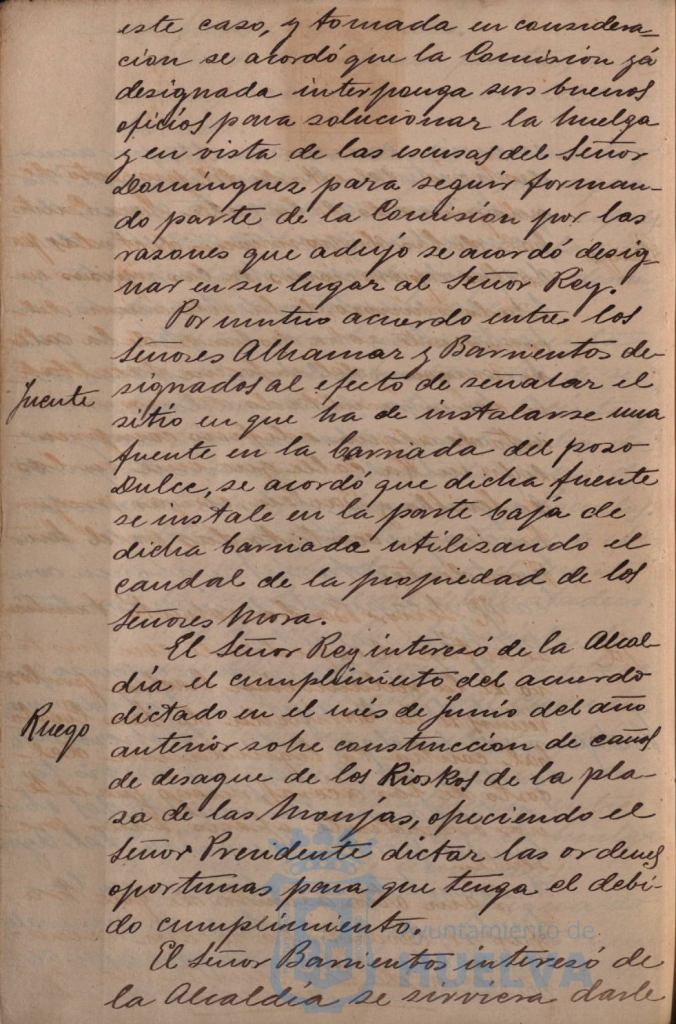 este caso, y tomada en considera-
cion se acordó que la Comisión yá
designada interponga sus buenos
oficios para solucionar la huelga
y en vista de las escusas del Señor
Domínguez para seguir forman-
do parte de la Comisión por las
rasones que adujo se acordó desig-
nar en su lugar al Señor Rey.
Por mutuo acuerdo entre los
Señores Alhamar y Barrientos de-
Fuente
signados al efecto de señalar el
sitio en que ha de instalarse una
fuente en la barriada del poso
Dulce, se acordó que dicha fuente
se instale en la parte bajá de
dicha barriada utilisando el
caudal de la propiedad de los
Señores Mora.
El Señor Rey interesó de la Alcal-
día el cumplimiento del acuerdo
Ruego
dictado en el més de Junio del año
anterior sobre construccion de caños
de desague de los Kioskos de la pla-
sa de las Monjas, ofreciendo el
Señor Presidente dictar las ordenes
oportunas para que tenga el debi-
do cumplimiento.
El Señor Barrientos interesó de
la Alcaldía se sirviera darle
Ayuntamiento de
HUELVA